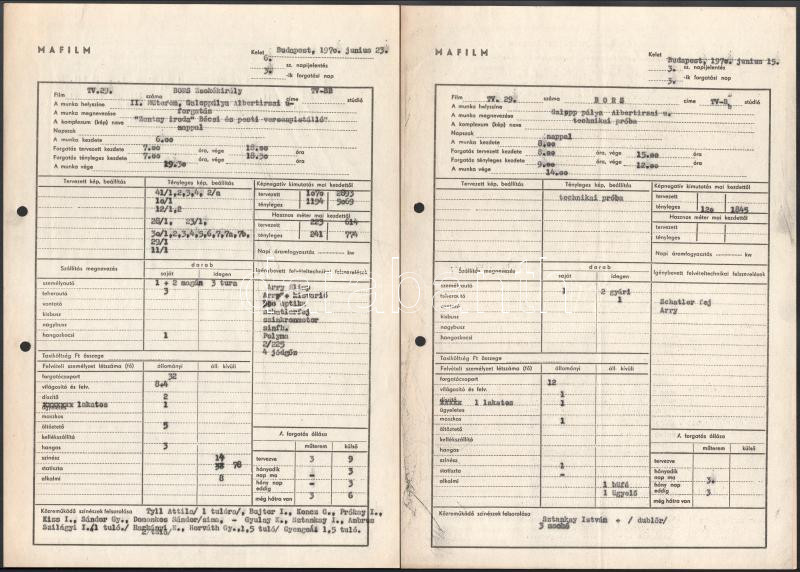 MAFILM
Kelet Budapest, 1970. junius 23.
6. sz. napijelentés
3. -ik forgatási nap
Film TV.29. száma BORS Zsokékirály címe TV-8B stúdió
A munka helyszíne II. Műterem, Galoppálya Albertirsai u-
A munka megnevezése forgatás
A komplexum (kép) neve "Zentay iroda" Bécsi és pesti versenyistálló"
Napszak nappal
A munka kezdete 6.00
Forgatás tervezett kezdete 7.00 óra, vége 18.00 óra
Forgatás tényleges kezdete 7.00 óra, vége 18.30 óra
A munka vége 19.30
Tervezett kép, beállítás Tényleges kép, beállítás Képnegatív kimutatás mai kezdettől
41/1,2,3,4, 2/a tervezett 1070 2893
10/1 tényleges 1194 5069
12/1,2 Hasznos méter mai kezdettől
28/1, 23/1, tervezett 223 614
30/1,2,3,4,5,6,7,7a,7b, tényleges 241 774
29/1
11/1 Napi áramfogyasztás kw
Szállítás megnevezés darab Igénybevett felvételtechnikai felszerelés
saját idegen
személyautó 1 + 2 magán 3 tura
teherautó 3
vontató
kisbusz
nagybusz
hangoskocsi 1
schatlerfej
szinkronmotor
sinfh.
2/225
4 jódgőz
Taxiköltség Ft összege
Felvételi személyzet létszáma (fő) állományi áll. kívüli
forgatócsoport 32
világosító és felv. 8+4
díszítő 2
xxxxxxx lakatos 1
ügyeletes
maszkos
öltöztető 5
kellékszállító
hangos 3
színész 14
statiszta 38 78
alkalmi 8
A forgatás állása
műterem külső
tervezve 3 9
hányadik nap ma – 3
hány nap eddig – 3
még hátra van 3 6
Közreműködő színészek felsorolása Tyll Attila/ 1 tulóra/, Bujtor I., Koncz G., Prókay I.,
Kiss I., Sándor Gy., Domonkos Sándor/sima, - Gyulay K., Sztankay I., Ambrus
Szilágyi I./1 tuló./ Nagkányi K., Horváth Gy.,1,5 tuló/ Gyengssi 1,5 tuló.
2/tuló/
MAFILM
Kelet Budapest, 1970 junius 15.
3. sz. napijelentés
5. -ik forgatási nap
Film TV. 29. száma BORS címe TV-8 b stúdió
A munka helyszíne Galopp pálya Albertirsai u.
A munka megnevezése technikai próba
A komplexum (kép) neve
Napszak nappal
A munka kezdete 8.00
Forgatás tervezett kezdete 8.00 óra, vége 15.00 óra
Forgatás tényleges kezdete 9.00 óra, vége 12.00 óra
A munka vége 14.00
Tervezett kép, beállítás Tényleges kép, beállítás Képnegatív kimutatás mai kezdettől
technikai próba tervezett
tényleges 120 1845
Hasznos méter mai kezdettől
tervezett
tényleges
Napi áramfogyasztás kw
Szállítás megnevezés darab Igénybevett felvételtechnikai felszerelések
saját idegen
személyautó 1 2 gyári
teherautó 1
vontató Schatler fej
kisbusz Arry
nagybusz
hangoskocsi
Taxiköltség Ft összege
Felvételi személyzet létszáma (fő) állományi áll. kívüli
forgatócsoport 12
világosító és felv.
díszítő 1
xxxxx 1 lakatos 1
ügyeletes
maszkos 1
öltöztető
kellékszállító
hangos
színész 1
statiszta -
alkalmi 1 büfé
1 ügyelő
A forgatás állása
műterem külső
tervezve
hányadik nap ma 3.
hány nap eddig 3
még hátra van
Közreműködő színészek felsorolása Sztankay István + / dublőr/
3 zsoké
darabanth